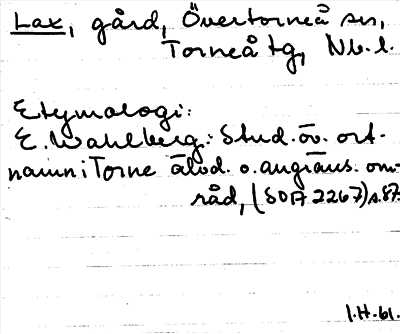 Lax, gård, Övertorneå sn,
Torneå tg, Nb. l.
Etymologi:
E. Wahlberg: Stud. öv. ort-
namn i Torne älvd. o. angräns. om-
råd, (SOA 2267) s. 87.
I.H. 61.